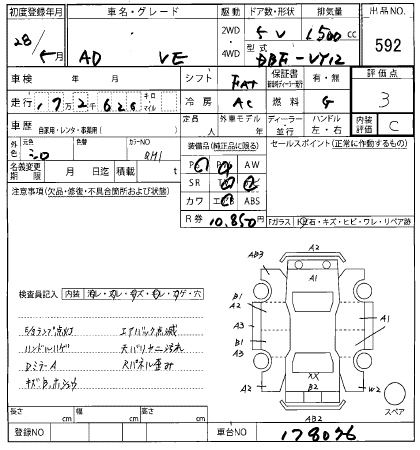 初度登録年月 車名・グレード 駆動 ドア数・形状 排気量 出品NO.
28/5月 AD VE 2WD 4WD 5V 1500cc 592
型式 DBF-VY12
車検 年 月 シフト FAT 保証書 有・無 評価点
走行 172626 キロ マイル 冷房 AC 燃料 G 3
車歴 自家用・レンタ・事業用( ) 定員 人 外車モデル 年 ディーラー 並行 ハンドル 左・右 内装評価 C
外色 元色 シロ 色替 カラーNO QM1 装備品(純正品に限る) セールスポイント(正常に作動するもの)
PS PW AW
名義変更期限 月 日迄 積載 t SR TV ナビ
注意事項(欠品・修復・不具合箇所および状態) カワ エアB ABS
R券 10,850円
Fガラス 飛石・キズ・ヒビ・ワレ・リペア跡
検査員記入 内装 汚レ・スレ・キズ・切レ・コゲ・穴
E/Gランプ点灯 エアバック点滅
ハンドルハゲ 天バリヤニ汚れ
DミラーA Rパネル歪み
キズB,ホシュウ
A2
AB3 A1
B1
A2
A3 A1
B1
A3
XX
A2 B2 W2
AB2 スペア
長さ cm 幅 cm 高さ cm
登録NO 車台NO 178076